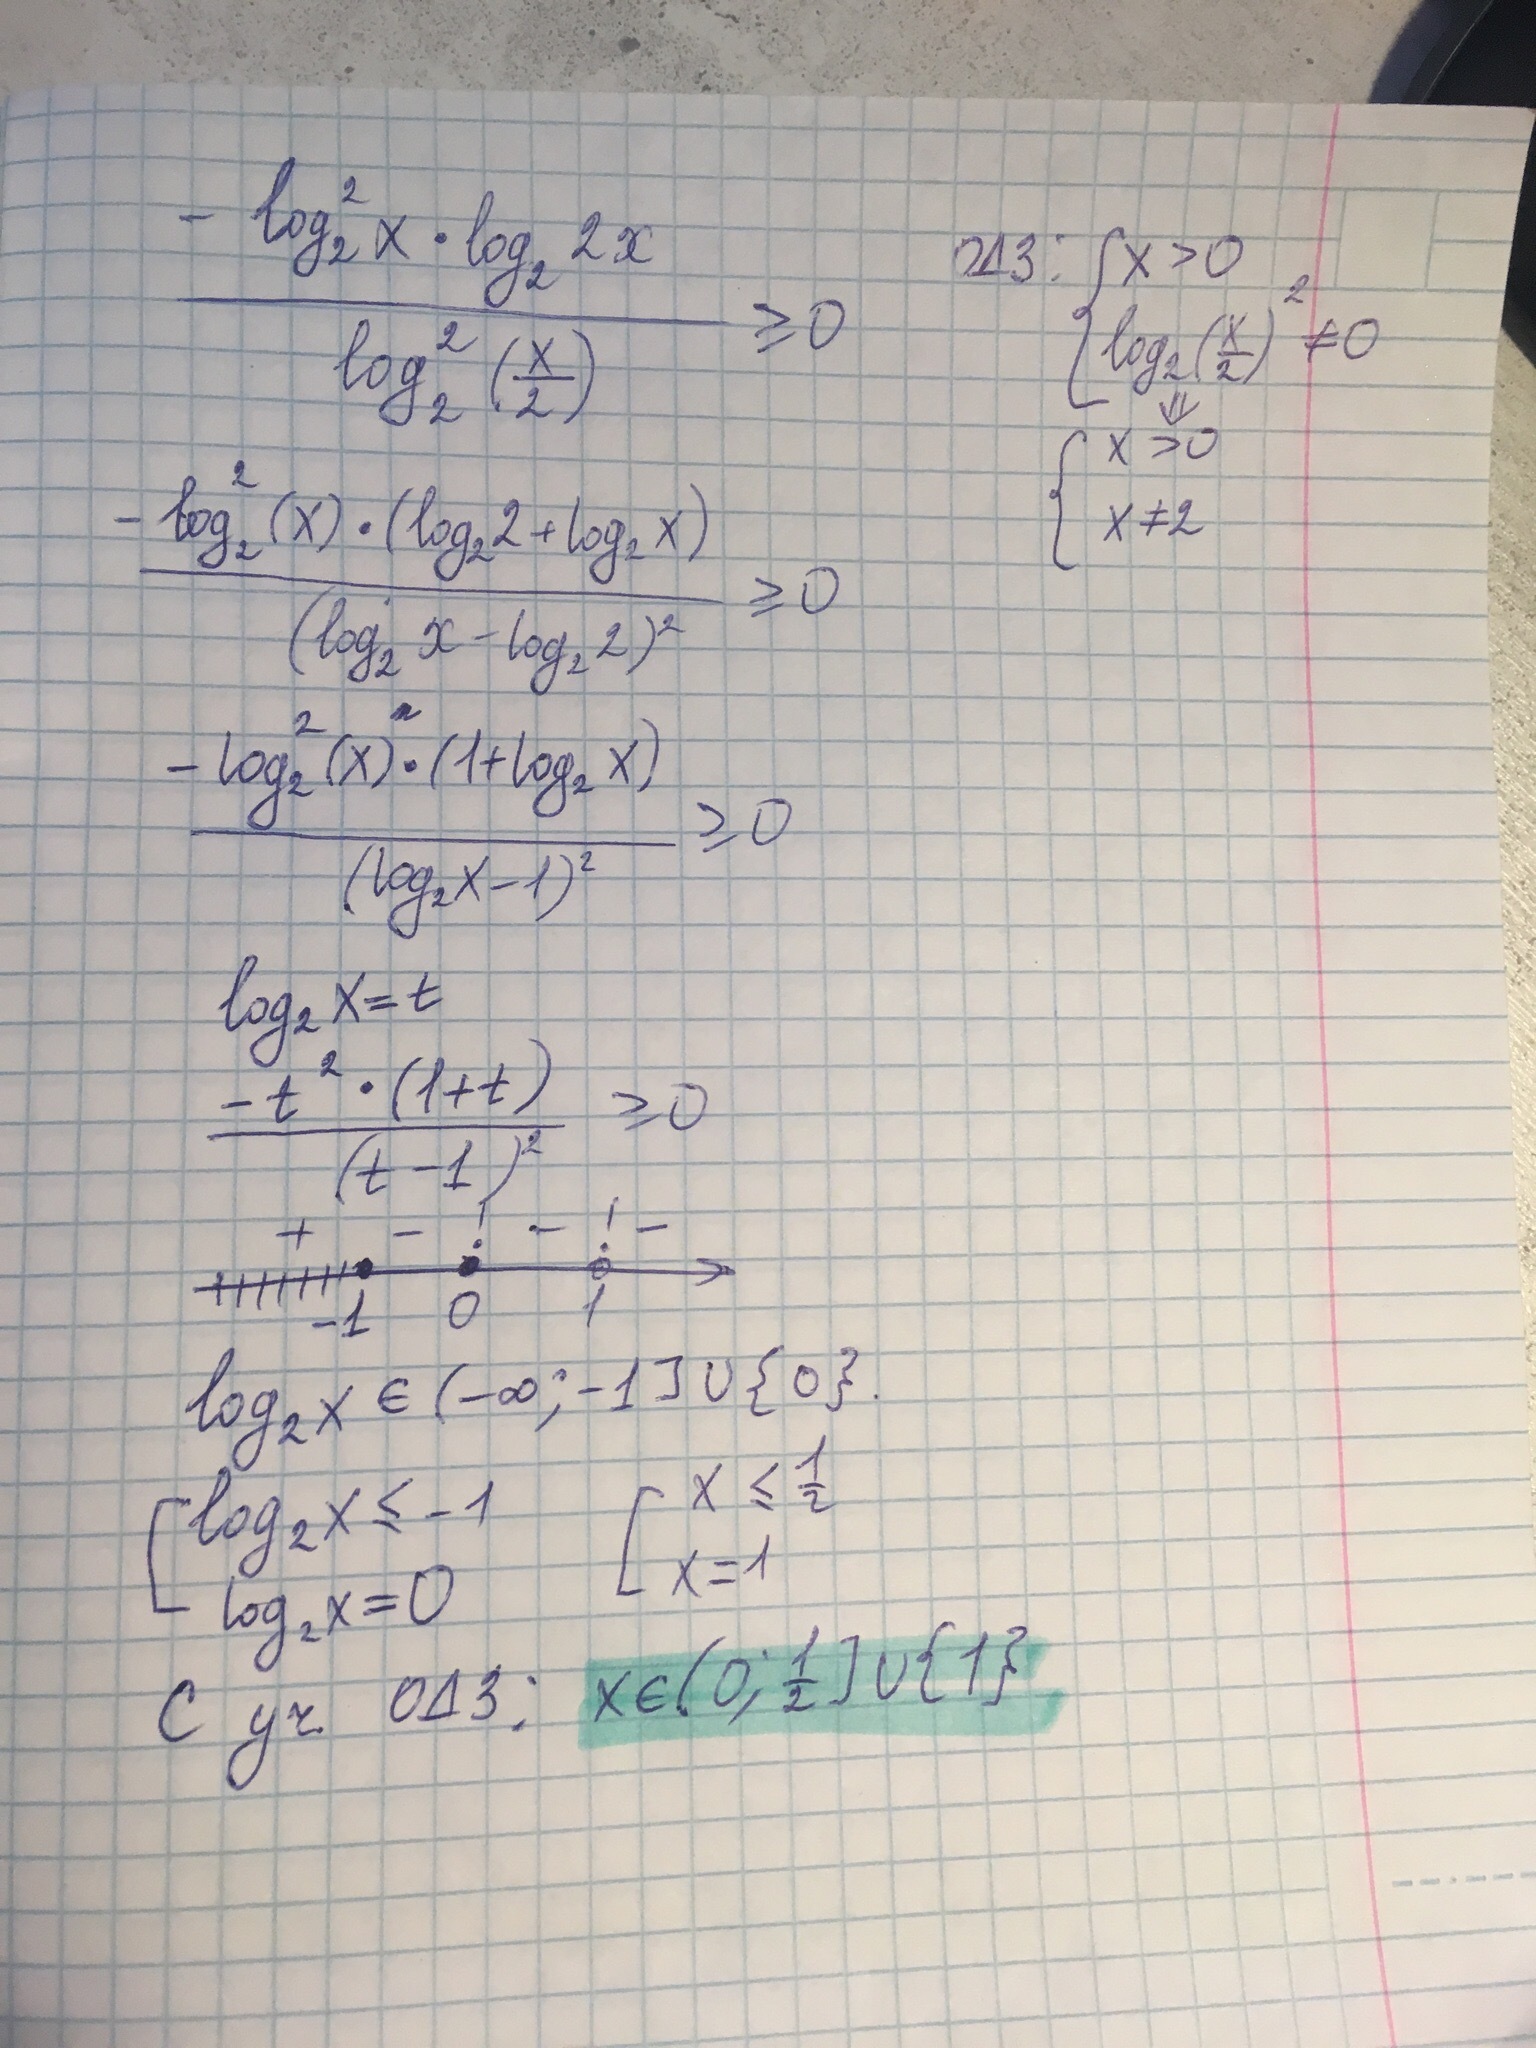 - log₂² x · log₂ 2x
———————— ≥ 0
log₂² (x/2)
ОДЗ: { x > 0
log₂ (x/2)² ≠ 0
⇓
{ x > 0
x ≠ 2
- log₂² (x) · (log₂ 2 + log₂ x)
———————— ≥ 0
(log₂ x - log₂ 2)²
- log₂² (x) · (1 + log₂ x)
———————— ≥ 0
(log₂ x - 1)²
log₂ x = t
- t² · (1 + t)
———————— ≥ 0
(t - 1)²
+ - ! - ! -
-1 0 1
log₂ x ∈ (-∞; -1] ∪ {0}.
[ log₂ x ≤ -1 [ x ≤ 1/2
log₂ x = 0 x = 1
С уч. ОДЗ: x ∈ (0; 1/2] ∪ {1}